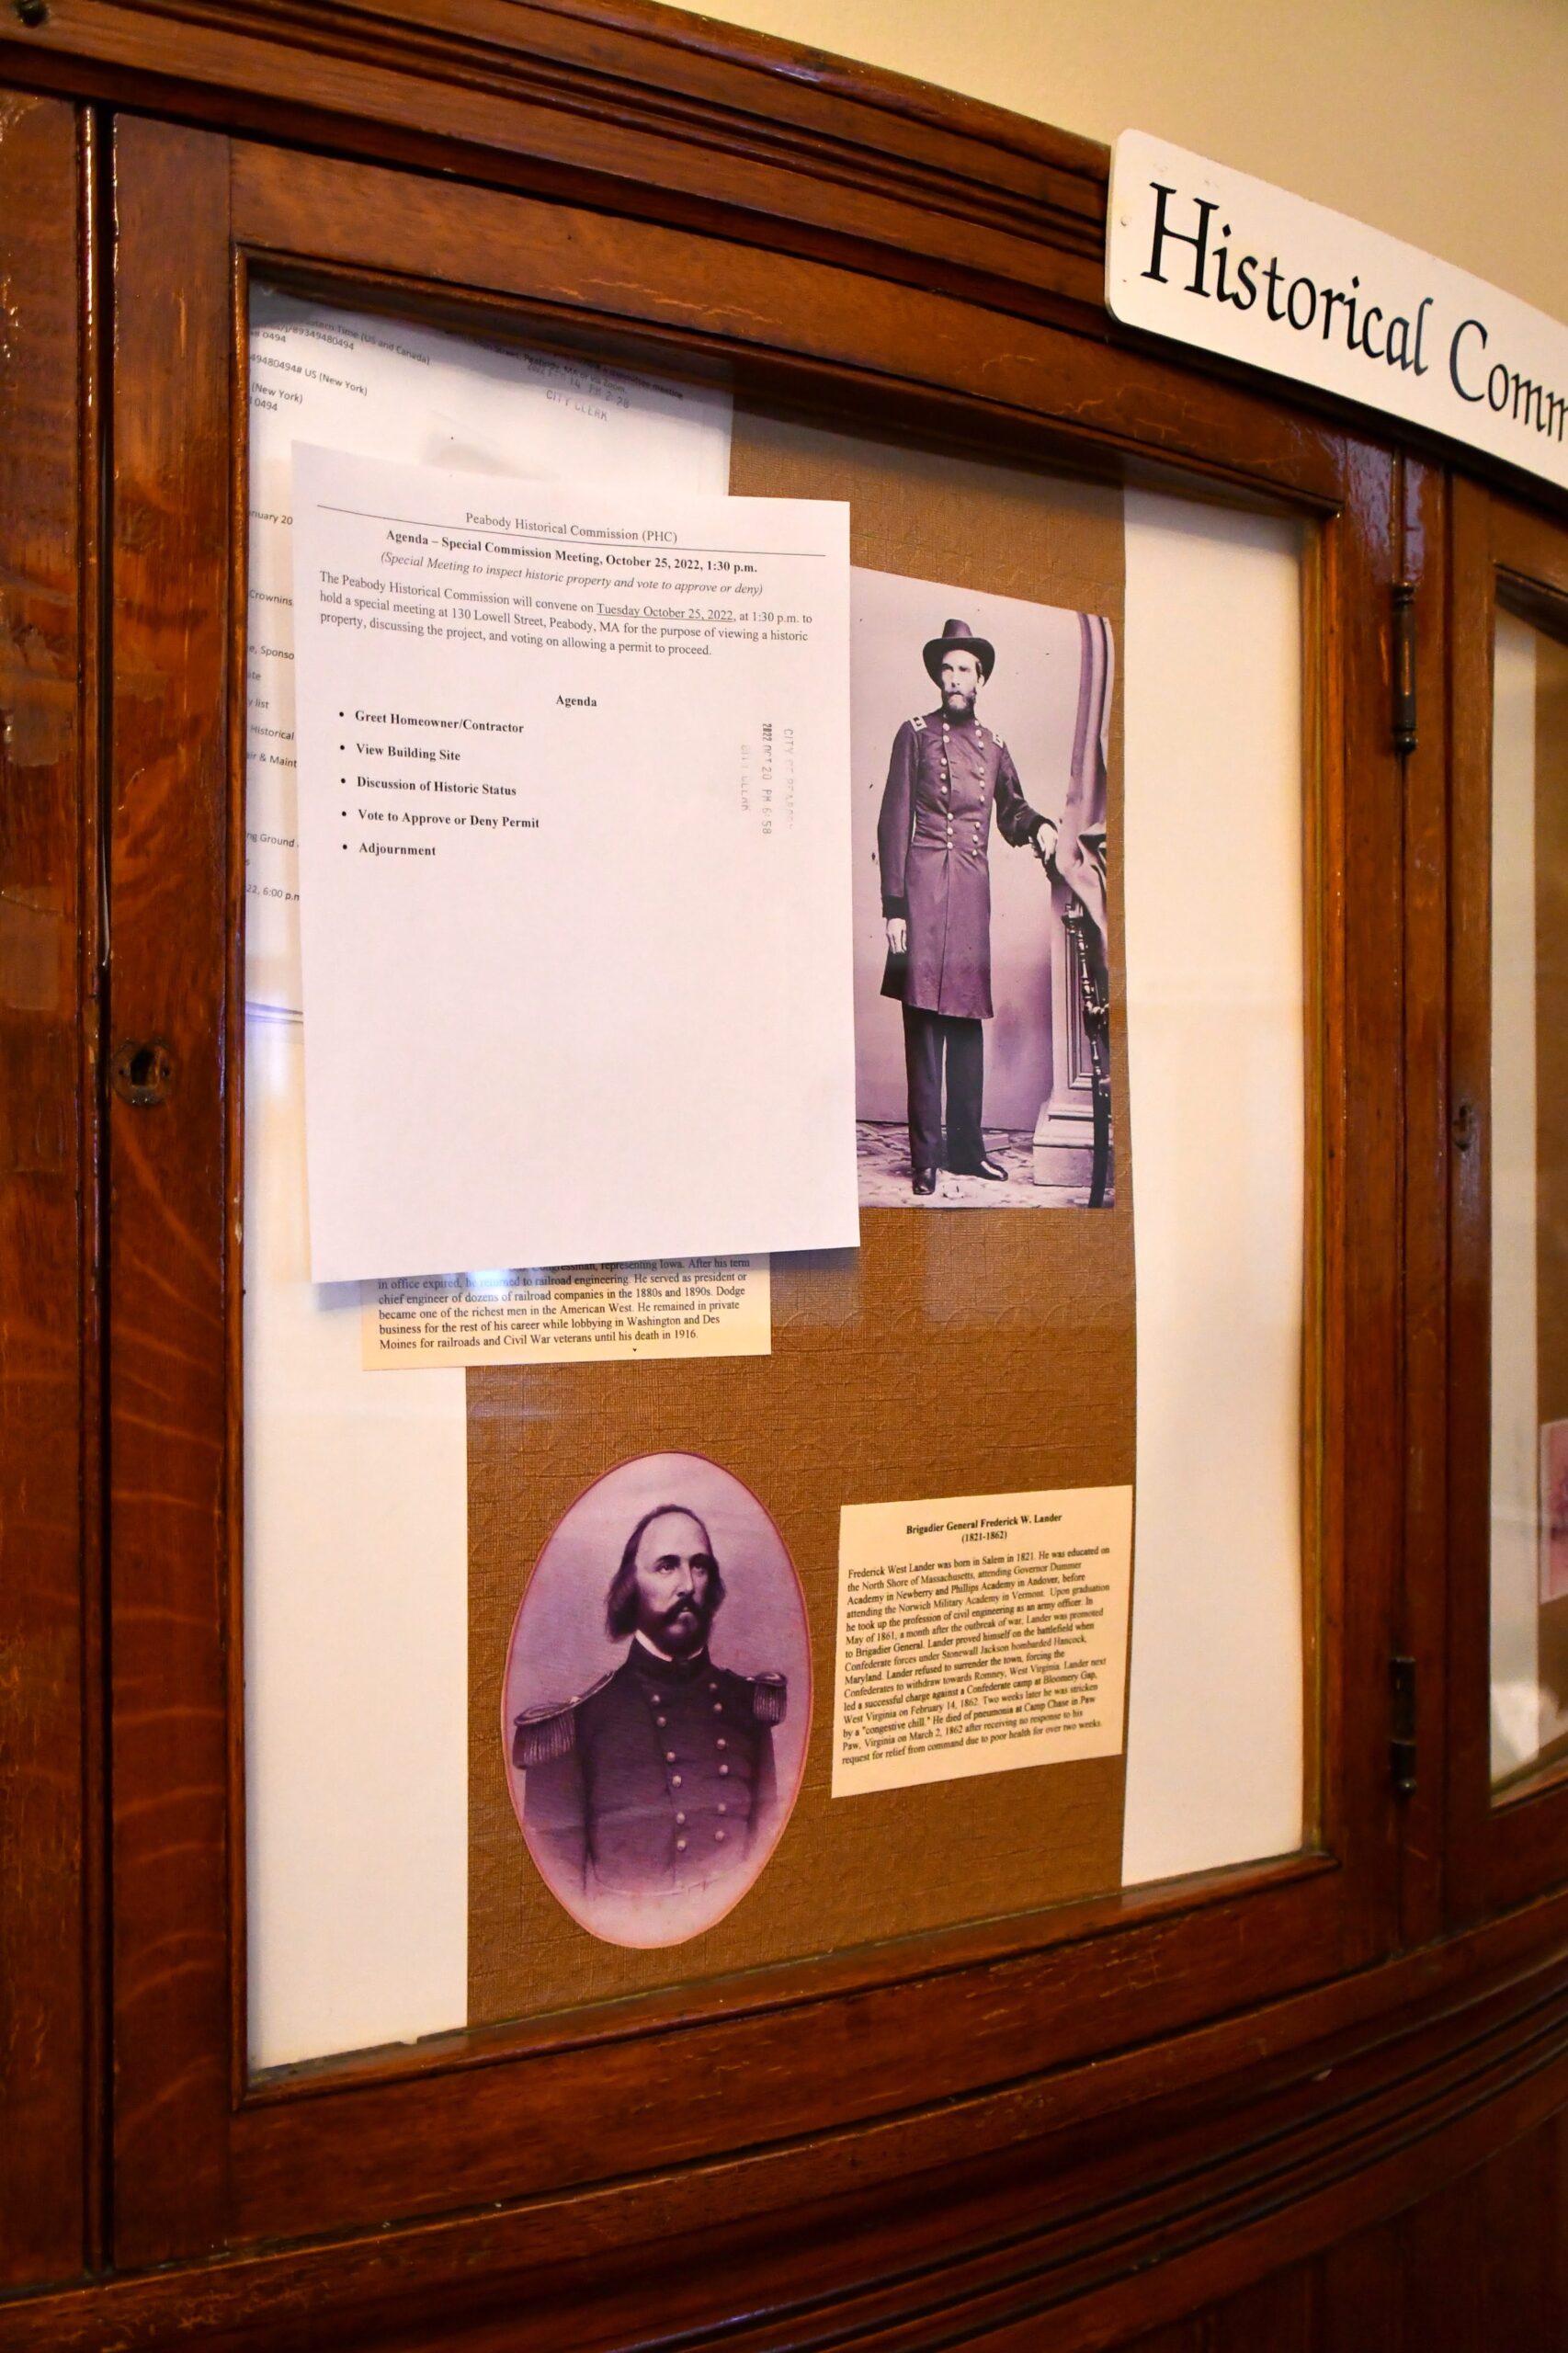 Historical Comm
stern Time (US and Canada)
/j/89349480494
0494
49480494# US (New York)
(New York)
0494
PM 2:28
CITY CLERK
nuary 20
Crownins
e, Sponso
ate
y list
Historical
air & Maint
ng Ground
s
22, 6:00 p.m
Peabody Historical Commission (PHC)
Agenda – Special Commission Meeting, October 25, 2022, 1:30 p.m.
(Special Meeting to inspect historic property and vote to approve or deny)
The Peabody Historical Commission will convene on Tuesday October 25, 2022, at 1:30 p.m. to
hold a special meeting at 130 Lowell Street, Peabody, MA for the purpose of viewing a historic
property, discussing the project, and voting on allowing a permit to proceed.
Agenda
• Greet Homeowner/Contractor
• View Building Site
• Discussion of Historic Status
• Vote to Approve or Deny Permit
• Adjournment
CITY OF PEABODY
2022 OCT 20 PM 6:58
CITY CLERK
Congressman, representing Iowa. After his term
in office expired, he returned to railroad engineering. He served as president or
chief engineer of dozens of railroad companies in the 1880s and 1890s. Dodge
became one of the richest men in the American West. He remained in private
business for the rest of his career while lobbying in Washington and Des
Moines for railroads and Civil War veterans until his death in 1916.
Brigadier General Frederick W. Lander
(1821-1862)
Frederick West Lander was born in Salem in 1821. He was educated on
the North Shore of Massachusetts, attending Governor Dummer
Academy in Newberry and Phillips Academy in Andover, before
attending the Norwich Military Academy in Vermont. Upon graduation
he took up the profession of civil engineering as an army officer. In
May of 1861, a month after the outbreak of war, Lander was promoted
to Brigadier General. Lander proved himself on the battlefield when
Confederate forces under Stonewall Jackson bombarded Hancock,
Maryland. Lander refused to surrender the town, forcing the
Confederates to withdraw towards Romney, West Virginia. Lander next
led a successful charge against a Confederate camp at Bloomery Gap,
West Virginia on February 14, 1862. Two weeks later he was stricken
by a "congestive chill." He died of pneumonia at Camp Chase in Paw
Paw, Virginia on March 2, 1862 after receiving no response to his
request for relief from command due to poor health for over two weeks.